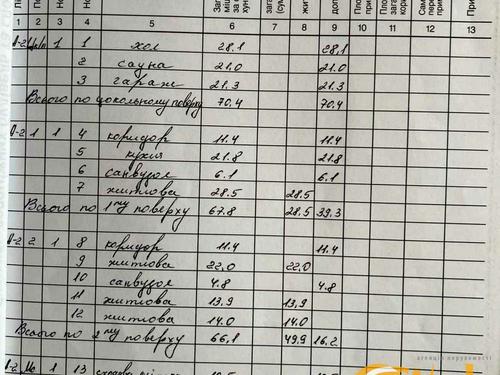 1 2 3 4 5 6 7 8 9 10 11 12 13
А-2 1 1 хол 28,1 28,1
2 сауна 21.0 21.0
3 гараж 21.3 21.3
Всього по цокольному поверху 70.4 70.4
А-2 1 1 4 коридор 11.4 11.4
5 кухня 21.8 21.8
6 санвузол 6.1 6.1
7 житлова 28.5 28.5
Всього по 1му поверху 67.8 28.5 39.3
А-2 2 1 8 коридор 11.4 11.4
9 житлова 22,0 22,0
10 санвузол 4.8 4.8
11 житлова 13,9 13,9
12 житлова 14.0 14.0
Всього по 2му поверху 66,1 49.9 16.2
13